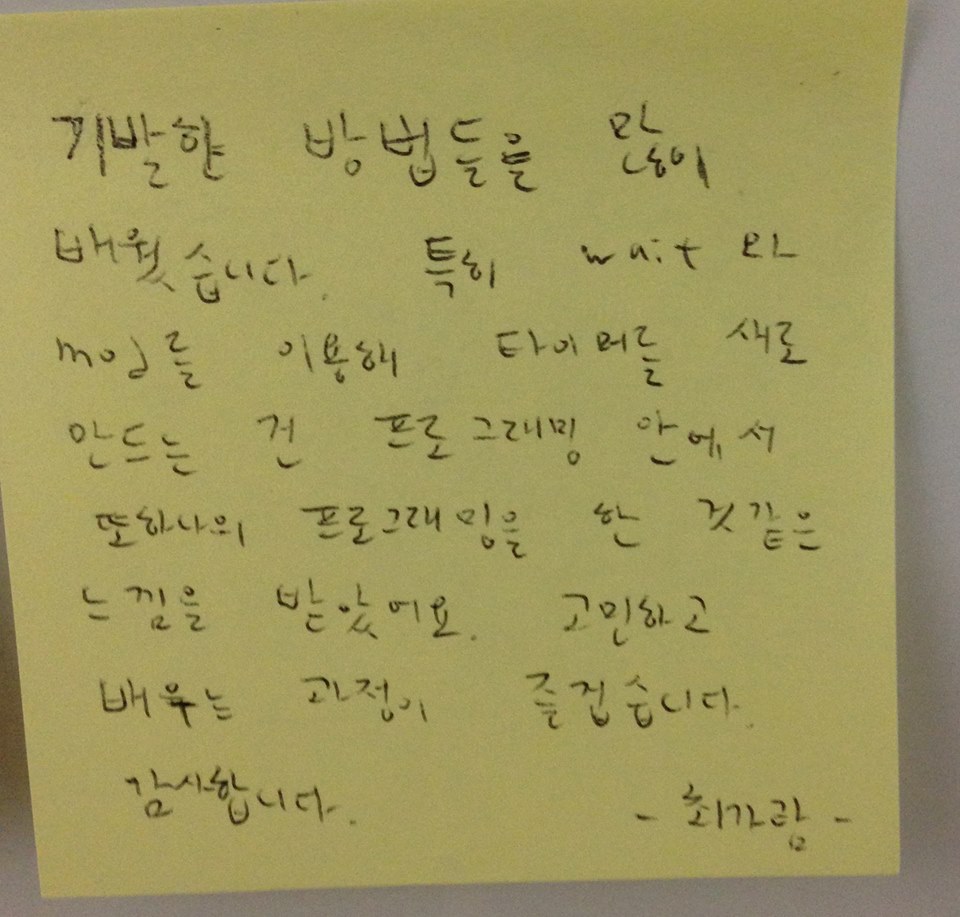 기발한 방법들을 많이
배웠습니다. 특히 wait 와
mod를 이용해 타이머를 새로
만드는 건 프로그래밍 안에서
또하나의 프로그래밍을 한 것같은
느낌을 받았어요. 고민하고
배우는 과정이 즐겁습니다.
감사합니다. - 최가람 -